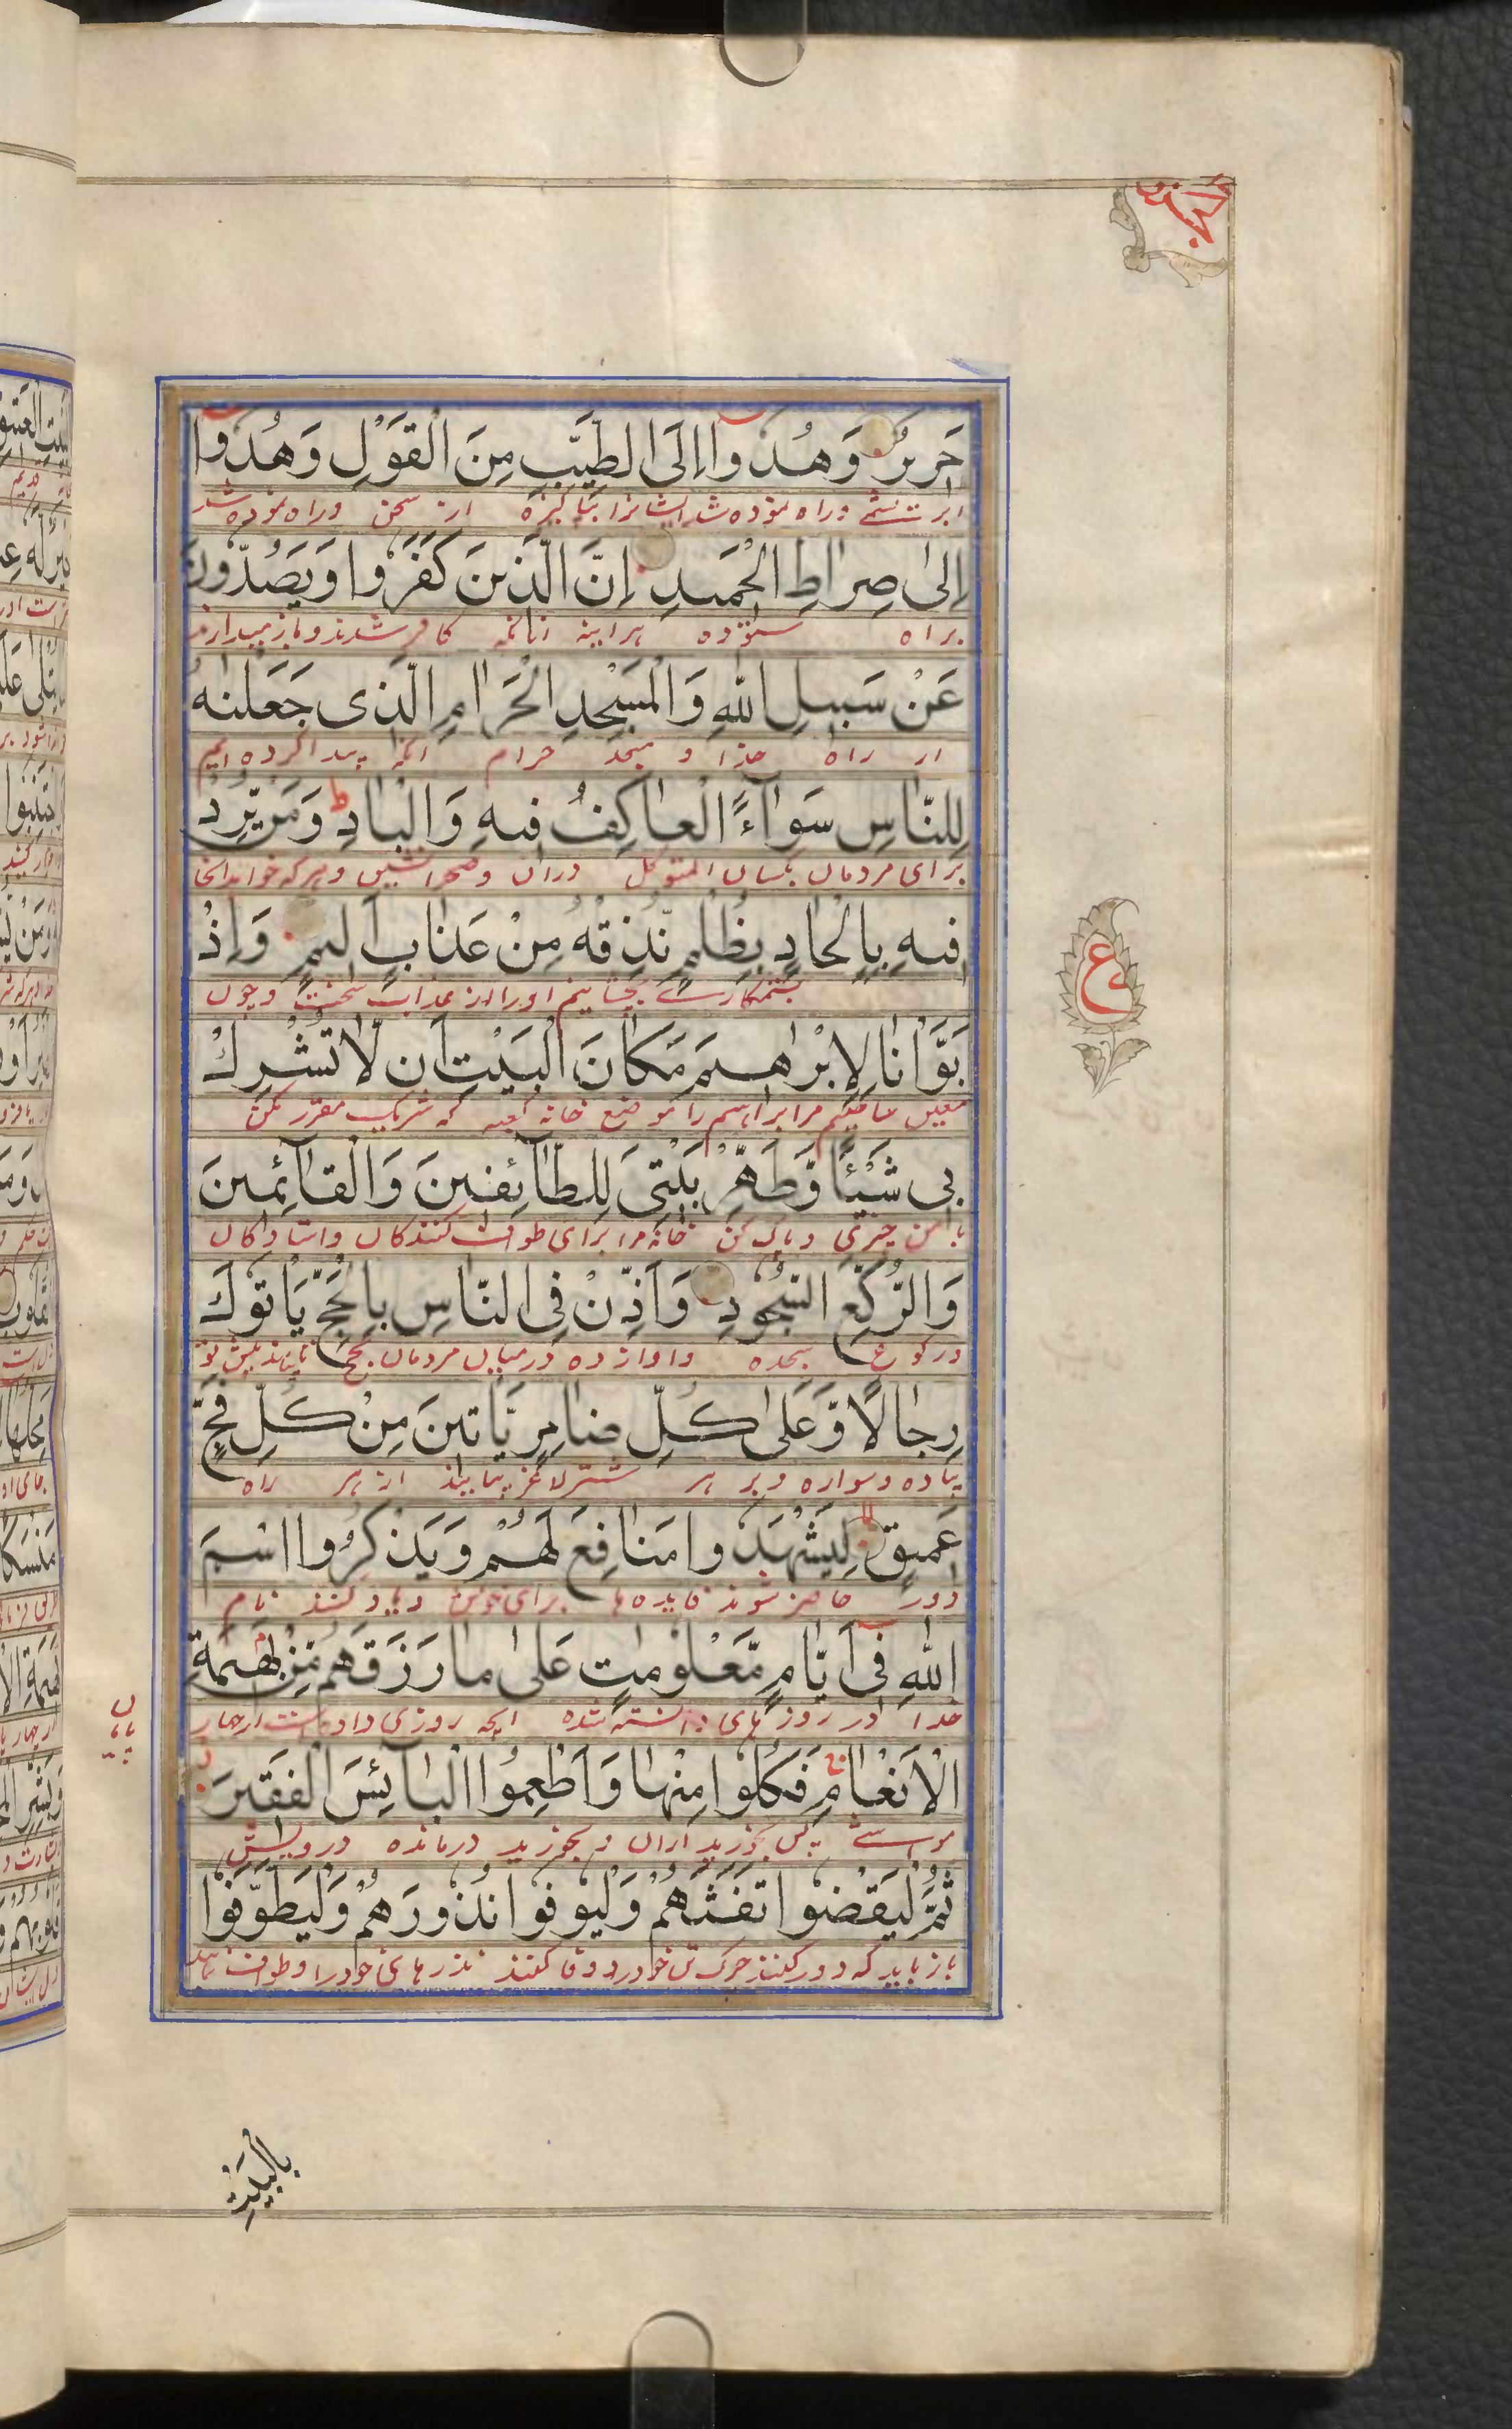 حَرِيرٌ وَهُدُوا إِلَى الطَّيِّبِ مِنَ الْقَوْلِ وَهُدُوا
ابریشمے وراه نموده شد ایشانرا بپاکیزه از سخن وراه نموده شد
إِلىٰ صِرَاطِ الْحَمِيدِ إِنَّ الَّذِينَ كَفَرُوا وَيَصُدُّونَ
براه ستوده هراینه انانکه کافر شدند و باز میدارند
عَنْ سَبِيلِ اللهِ وَالْمَسْجِدِ الْحَرَامِ الَّذِي جَعَلْنٰهُ
از راه خدا و مسجد حرام انکه پیدا کرده ایم
لِلنَّاسِ سَوَآءً الْعَاكِفُ فِيهِ وَالْبَادِ ط وَمَنْ يُّرِدْ
برای مردمان یکسان دران و صحرا نشین و هر که خواهد
فِيهِ بِإِلْحَادٍ بِظُلْمٍ نُّذِقْهُ مِنْ عَذَابٍ أَلِيمٍ وَإِذْ
بستمکارے بچشانیم اورا از عذاب سخت و چون
بَوَّأْنَا لِإِبْرٰهِيمَ مَكَانَ الْبَيْتِ أَن لَّا تُشْرِكْ
معین ساختیم مر ابراهیم را موضع خانه کعبه که شریک مقرر مکن
بِي شَيْئًا وَّطَهِّرْ بَيْتِيَ لِلطَّآئِفِينَ وَالْقَآئِمِينَ
با من چیزی و پاک کن خانه مرا برای طواف کنندکان و استادکان
وَالرُّكَّعِ السُّجُودِ وَأَذِّنْ فِي النَّاسِ بِالْحَجِّ يَأْتُوكَ
و رکوع سجده و اواز ده در میان مردمان بحج تا بیایند پیش تو
رِجَالًا وَّعَلىٰ كُلِّ ضَامِرٍ يَّأْتِينَ مِنْ كُلِّ فَجٍّ
پیاده و سواره و بر هر شتر لاغر بیایند از هر راه
عَمِيقٍ لِيَشْهَدُوا مَنَافِعَ لَهُمْ وَيَذْكُرُوا اسْمَ
دور حاضر شوند فایده ها برای خویش و یاد کنند نام
اللهِ فِي أَيَّامٍ مَّعْلُومٰتٍ عَلىٰ مَا رَزَقَهُم مِّنْ بَهِيمَةِ
خدا در روز های دانسته شده روزی داده است از چهار
الْأَنْعَامِ فَكُلُوا مِنْهَا وَأَطْعِمُوا الْبَآئِسَ الْفَقِيرَ
پس بخورید ازان و بخورید درمانده درویش
ثُمَّ لْيَقْضُوا تَفَثَهُمْ وَلْيُوفُوا نُذُورَهُمْ وَلْيَطَّوَّفُوا
باز باید که دور کنند چرک تن خود را و وفا کنند نذرهای خود را و طواف نمایند
ع
بِالْبَيْتِ